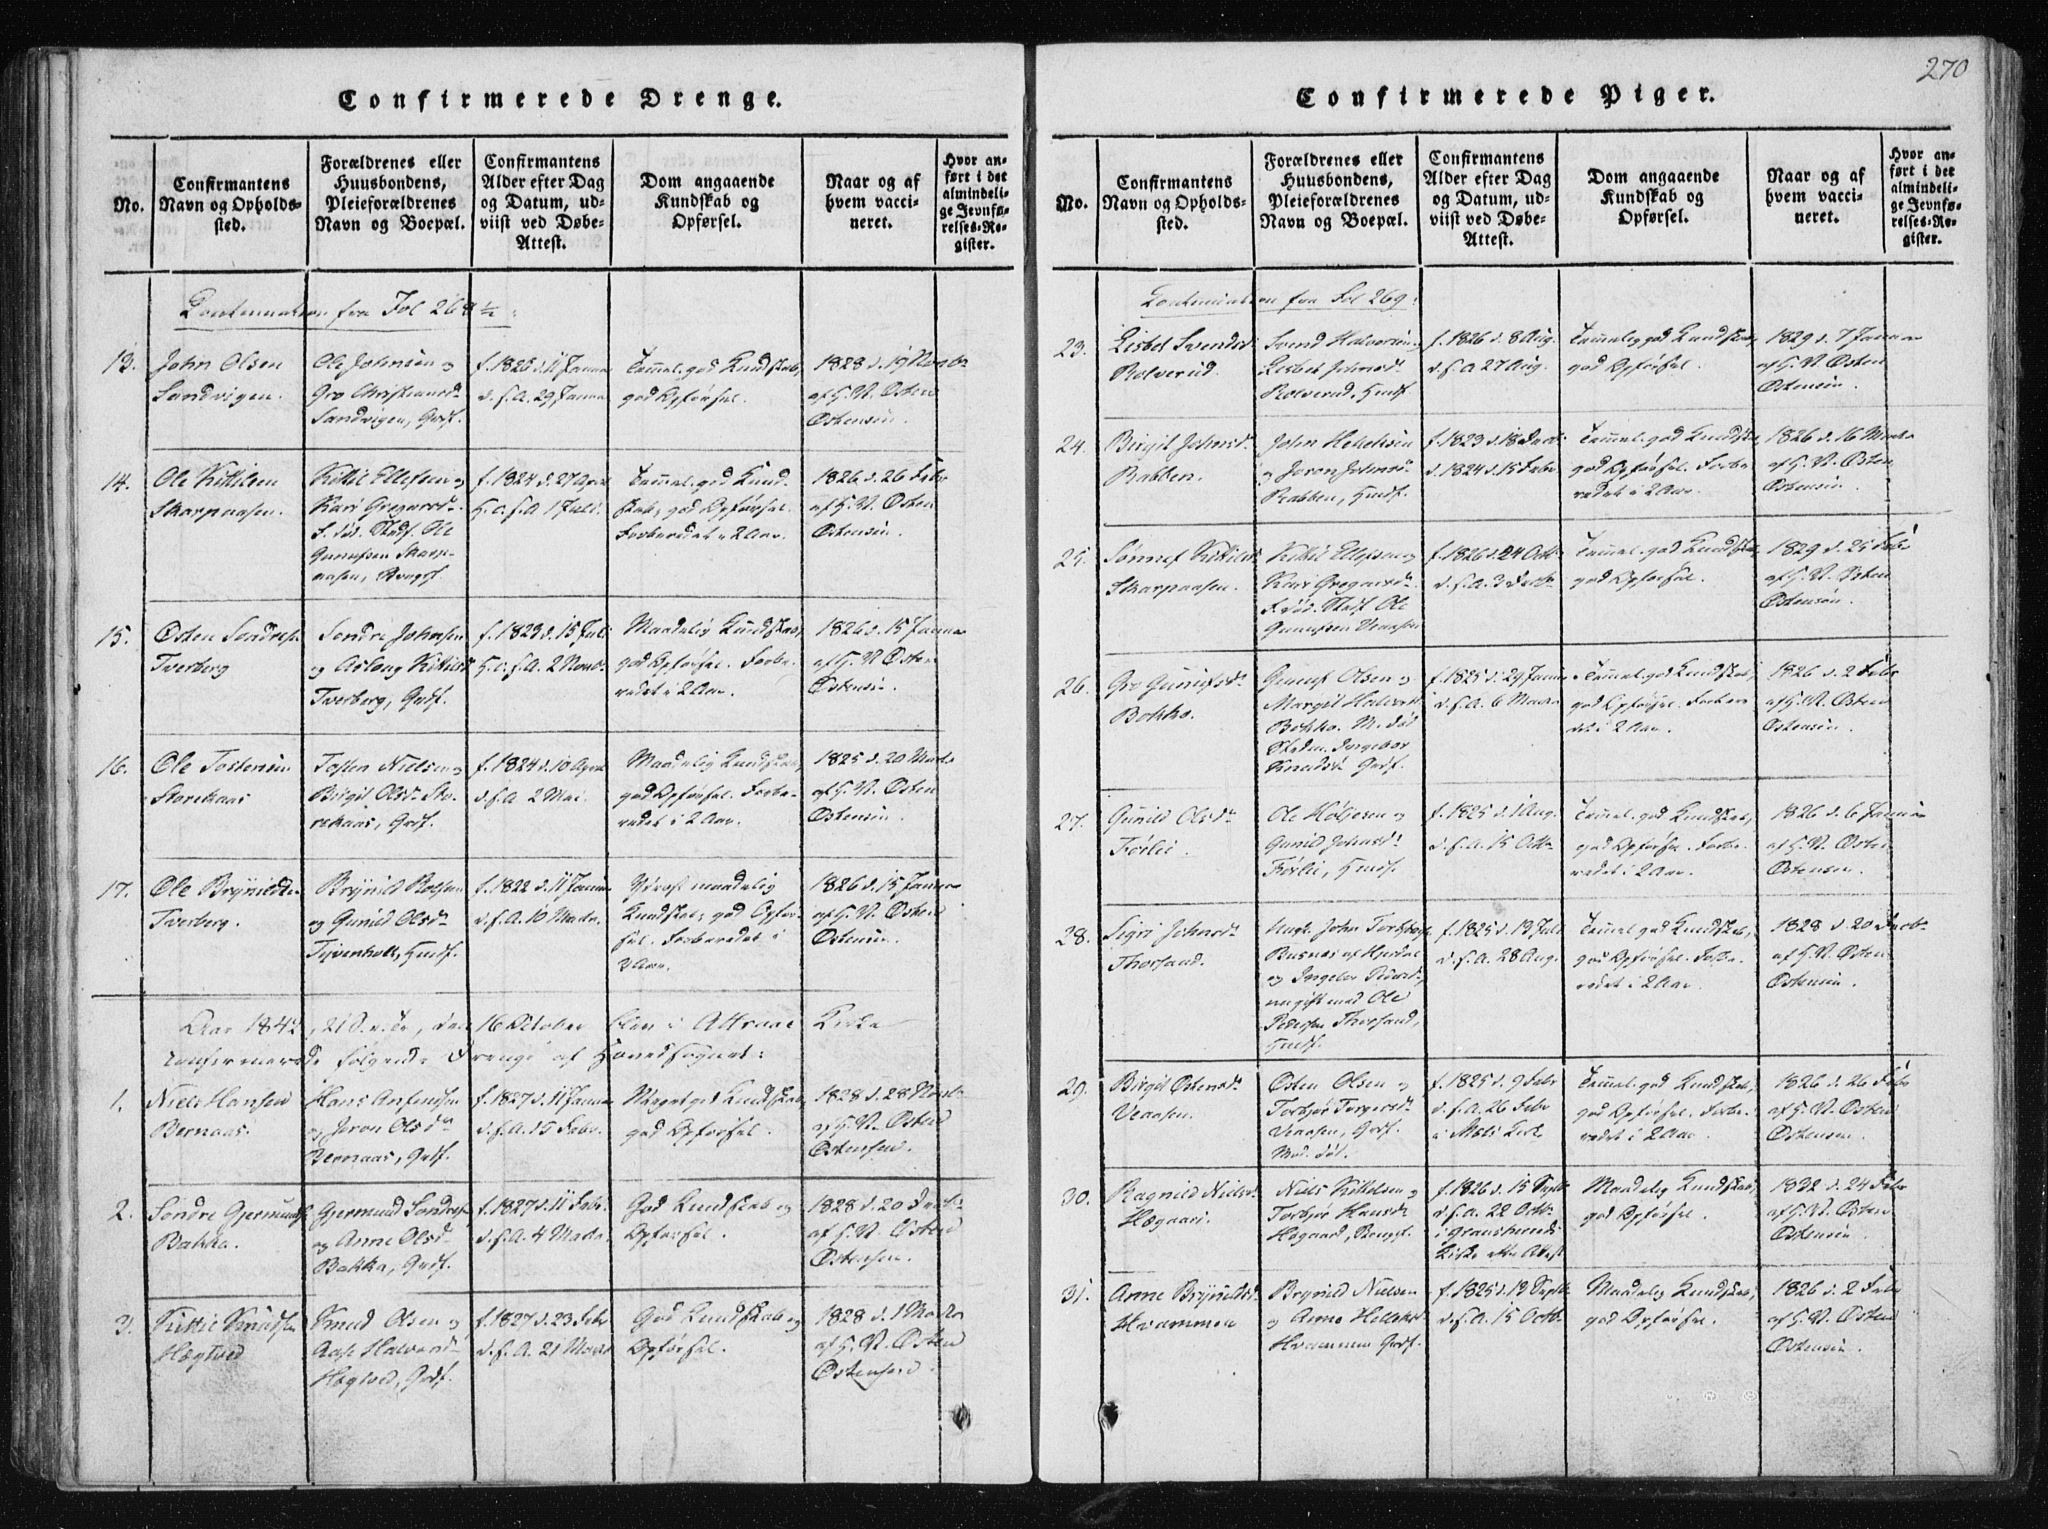 270
Confirmerede Drenge.
No.
Confirmantens
Navn og Opholds-
sted.
Forældrenes eller
Huusbondens,
Pleieforældrenes
Navn og Boepæl.
Confirmantens
Alder efter Dag
og Datum, ud-
viist ved Døbe-
Attest.
Dom angaaende
Kundskab og
Opførsel.
Naar og af
hvem vacci-
neret.
Hvor an-
ført i det
almindeli-
ge Jevnfø-
relses-Re-
gister.
Continuation fra Fol 268½:
13.
John Olsen
Sandvigen.
Ole Johnsen og
Gro Christiansd.
Sandvigen, Grdf.
f. 1826 d. 11 Janua
d. s. A. 29 Janua
Temmel. god Kundskab,
god Opførsel.
1828 d. 19 Novbr
af H. N. Østen
Østensen.
14.
Ole Kittilsen
Skarpaasen.
Kittil Ellefsen og
Kari Gregarsd.
F. død. Stedf. Ole
Gunufsen Skarp-
aasen, Brugsf.
f. 1824 d. 27 April
H. s. A. 1 Juli.
Temmel. god Kund-
skab, god Opførsel.
Forberedet i 2 Aar.
1826 d. 26 Febr
af H. N. Østen
Østensen.
15.
Østen Sondres.
Tverberg
Sondre Johnsen
og Aslaug Kittilsd
Tverberg, Grdf.
f. 1823 d. 15 Juli
H. s. A. 2 Novbr.
Maadelig Kundskab,
god Opførsel. Forbe-
redet i 2 Aar.
1826 d. 15 Janua
af H. N. Østen
Østensen
16.
Ole Tostensen
Storekaas
Tosten Nielsen og
Birgit Olsd. Sto-
rekaas, Grdf.
f. 1824 d. 10 April
d. s. A. 2 Mai.
Maadelig Kundskab,
god Opførsel. Forbe-
redet i 2 Aar.
1825 d. 20 Marts
af H. N. Østen
Østensen.
17.
Ole Brynildsen
Tverberg.
Brynild Rolfsen
og Gunild Olsd.
Tjvenholt, Huusf.
f. 1822 d. 11 Janua
d. s. A. 10 Marts.
Yderst maadelig
Kundskab, god Opfør-
sel. Forberedet i
3 Aar.
1826 d. 15 Janua
af H. N. Østen
Østensen.
Aar 1842, 21 S. e. Tr., den 16 October blev i Attraae Kirke
confirmerede følgende Drenge af Hovedsognet:
1.
Niels Hansen
Bernaas.
Hans Anfindsen
og Joron Olsd.
Bernaas, Grdf.
f. 1827 d. 11 Janua
d. s. A. 15 Febr.
Meget god Kundskab,
god Opførsel.
1828 d. 28 Novbr
af H. N. Østen
Østensen.
2.
Sondre Gjermunds.
Bakka.
Gjermund Sondres.
og Anne Olsd.
Bakka, Grdf.
f. 1827 d. 11 Febr.
d. s. A. 4 Marts.
God Kundskab og
Opførsel.
1828 d. 20 Decbr
af H. N. Østen
Østensen.
3.
Kittil Knudsen
Høgtved
Knud Olsen og
Aase Halvorsd.
Høgtved, Grdf.
f. 1827 d. 23 Febr
d. s. A. 21 Marts
God Kundskab og
Opførsel.
1828 d. 1 Marts
af H. N. Østen
Østensen.
Confirmerede Piger.
No.
Confirmantens
Navn og Opholds-
sted.
Forældrenes eller
Huusbondens,
Pleieforældrenes
Navn og Boepæl.
Confirmantens
Alder efter Dag
og Datum, ud-
viist ved Døbe-
Attest.
Dom angaaende
Kundskab og
Opførsel.
Naar og af
hvem vacci-
neret.
Hvor an-
ført i det
almindeli-
ge Jevnfø-
relses-Re-
gister.
Continuation fra Fol 269:
23.
Lisbet Svendsd.
Rolverud.
Svend Halvorsen og
Lisbet Johnsd.
Rolverud, Huusf.
f. 1826 d. 8 Aug.
d. s. A. 27 Aug.
Temmelig god Kundskab,
god Opførsel.
1829 d. 7 Janua
af H. N. Østen
Østensen.
24.
Birgit Johnsd.
Rabben.
John
og Joron Johnsd.
Rabben, Huusf.
f. 1823 d. 18 Decbr.
d. 1824 d. 15 Febr.
Temmel. god Kundskab,
god Opførsel. Forbe-
redet i 2 Aar.
1826 d. 16 Marts
af H. N. Østen
Østensen.
25.
Sønnef Kittilsd.
Skarpaasen.
Kittil Ellefsen og
Kari Gregarsd.
F. død. Stedf. Ole
Gunufsen Veaasen
f. 1826 d. 24 Octb.
d. s. A. 3 Decbr.
Temmel. god Kundskab,
god Opførsel.
1829 d. 25 Feb
af H. N. Østen
Østensen.
26.
Gro Gunufsd.
Bokko.
Gunuf Olsen og
Margit Halvorsd
Bokko. M. død
Stedm. Ingebor
Knudsd. Grdf.
f. 1825 d. 29 Janua
d. s. A. 6 Marts
Temmel. god Kundskab,
god Opførsel. Forbere-
det i 2 Aar.
1826 d. 2 Febr
af H. N. Østen
Østensen.
27.
Gunild Olsd.
Førlie.
Ole Høljesen og
Gunild Johnsd.
Førlie, Huusf.
f. 1825 d. 1 Aug.
d. s. A. 15 Octbr
Temmel. god Kundskab,
god Opførsel. Forbe-
redet i 2 Aar.
1826 d. 6 Janua
af H. N. Østen
Østensen.
28.
Sigri Johnsd.
Thorsand.
Ungk. John
Busnes af Hjerdal
og Ingebor
nu gift med Ole
Pedersen Thorsand,
Huusf.
f. 1825 d. 13 Juli
d. s. A. 28 Aug.
Temmel. god Kundskab,
god Opførsel. Forbe-
redet i 2 Aar.
1828 d. 20 Decb.
af H. N. Østen
Østensen.
29.
Birgit Østensd.
Veaasen.
Østen Olsen og
Torbjør Torgersd.
Veaasen, Grdf.
Mod. død.
f. 1825 d. 9 Febr
d. s. A. 26 Febr
i Mæls Kirk.
Temmel. god Kundskab,
god Opførsel. Forbe-
redet i 2 Aar.
1826 d. 26 Febr
af H. N. Østen
Østensen.
30.
Ragnild Nielsd.
Høgaar.
Niels Kittelsen og
Torbjør Hansd.
Høgaard, Brugsf.
f. 1826 d. 15 Septb.
d. s. A. 22 Octb.
i Gransherreds
Kirke efter Attest
Maadelig Kundskab,
god Opførsel.
1832 d. 24 Febr
af H. N. Østen
Østensen.
31.
Anne Brynildsd.
Hvammen
Brynild Nielsen
og Anne
Hvammen Grdf.
f. 1825 d. 13 Septb.
d. s. A. 15 Octb.
Maadelig Kundskab,
god Opførsel.
1826 d. 2 Febr
af H. N. Østen
Østensen.